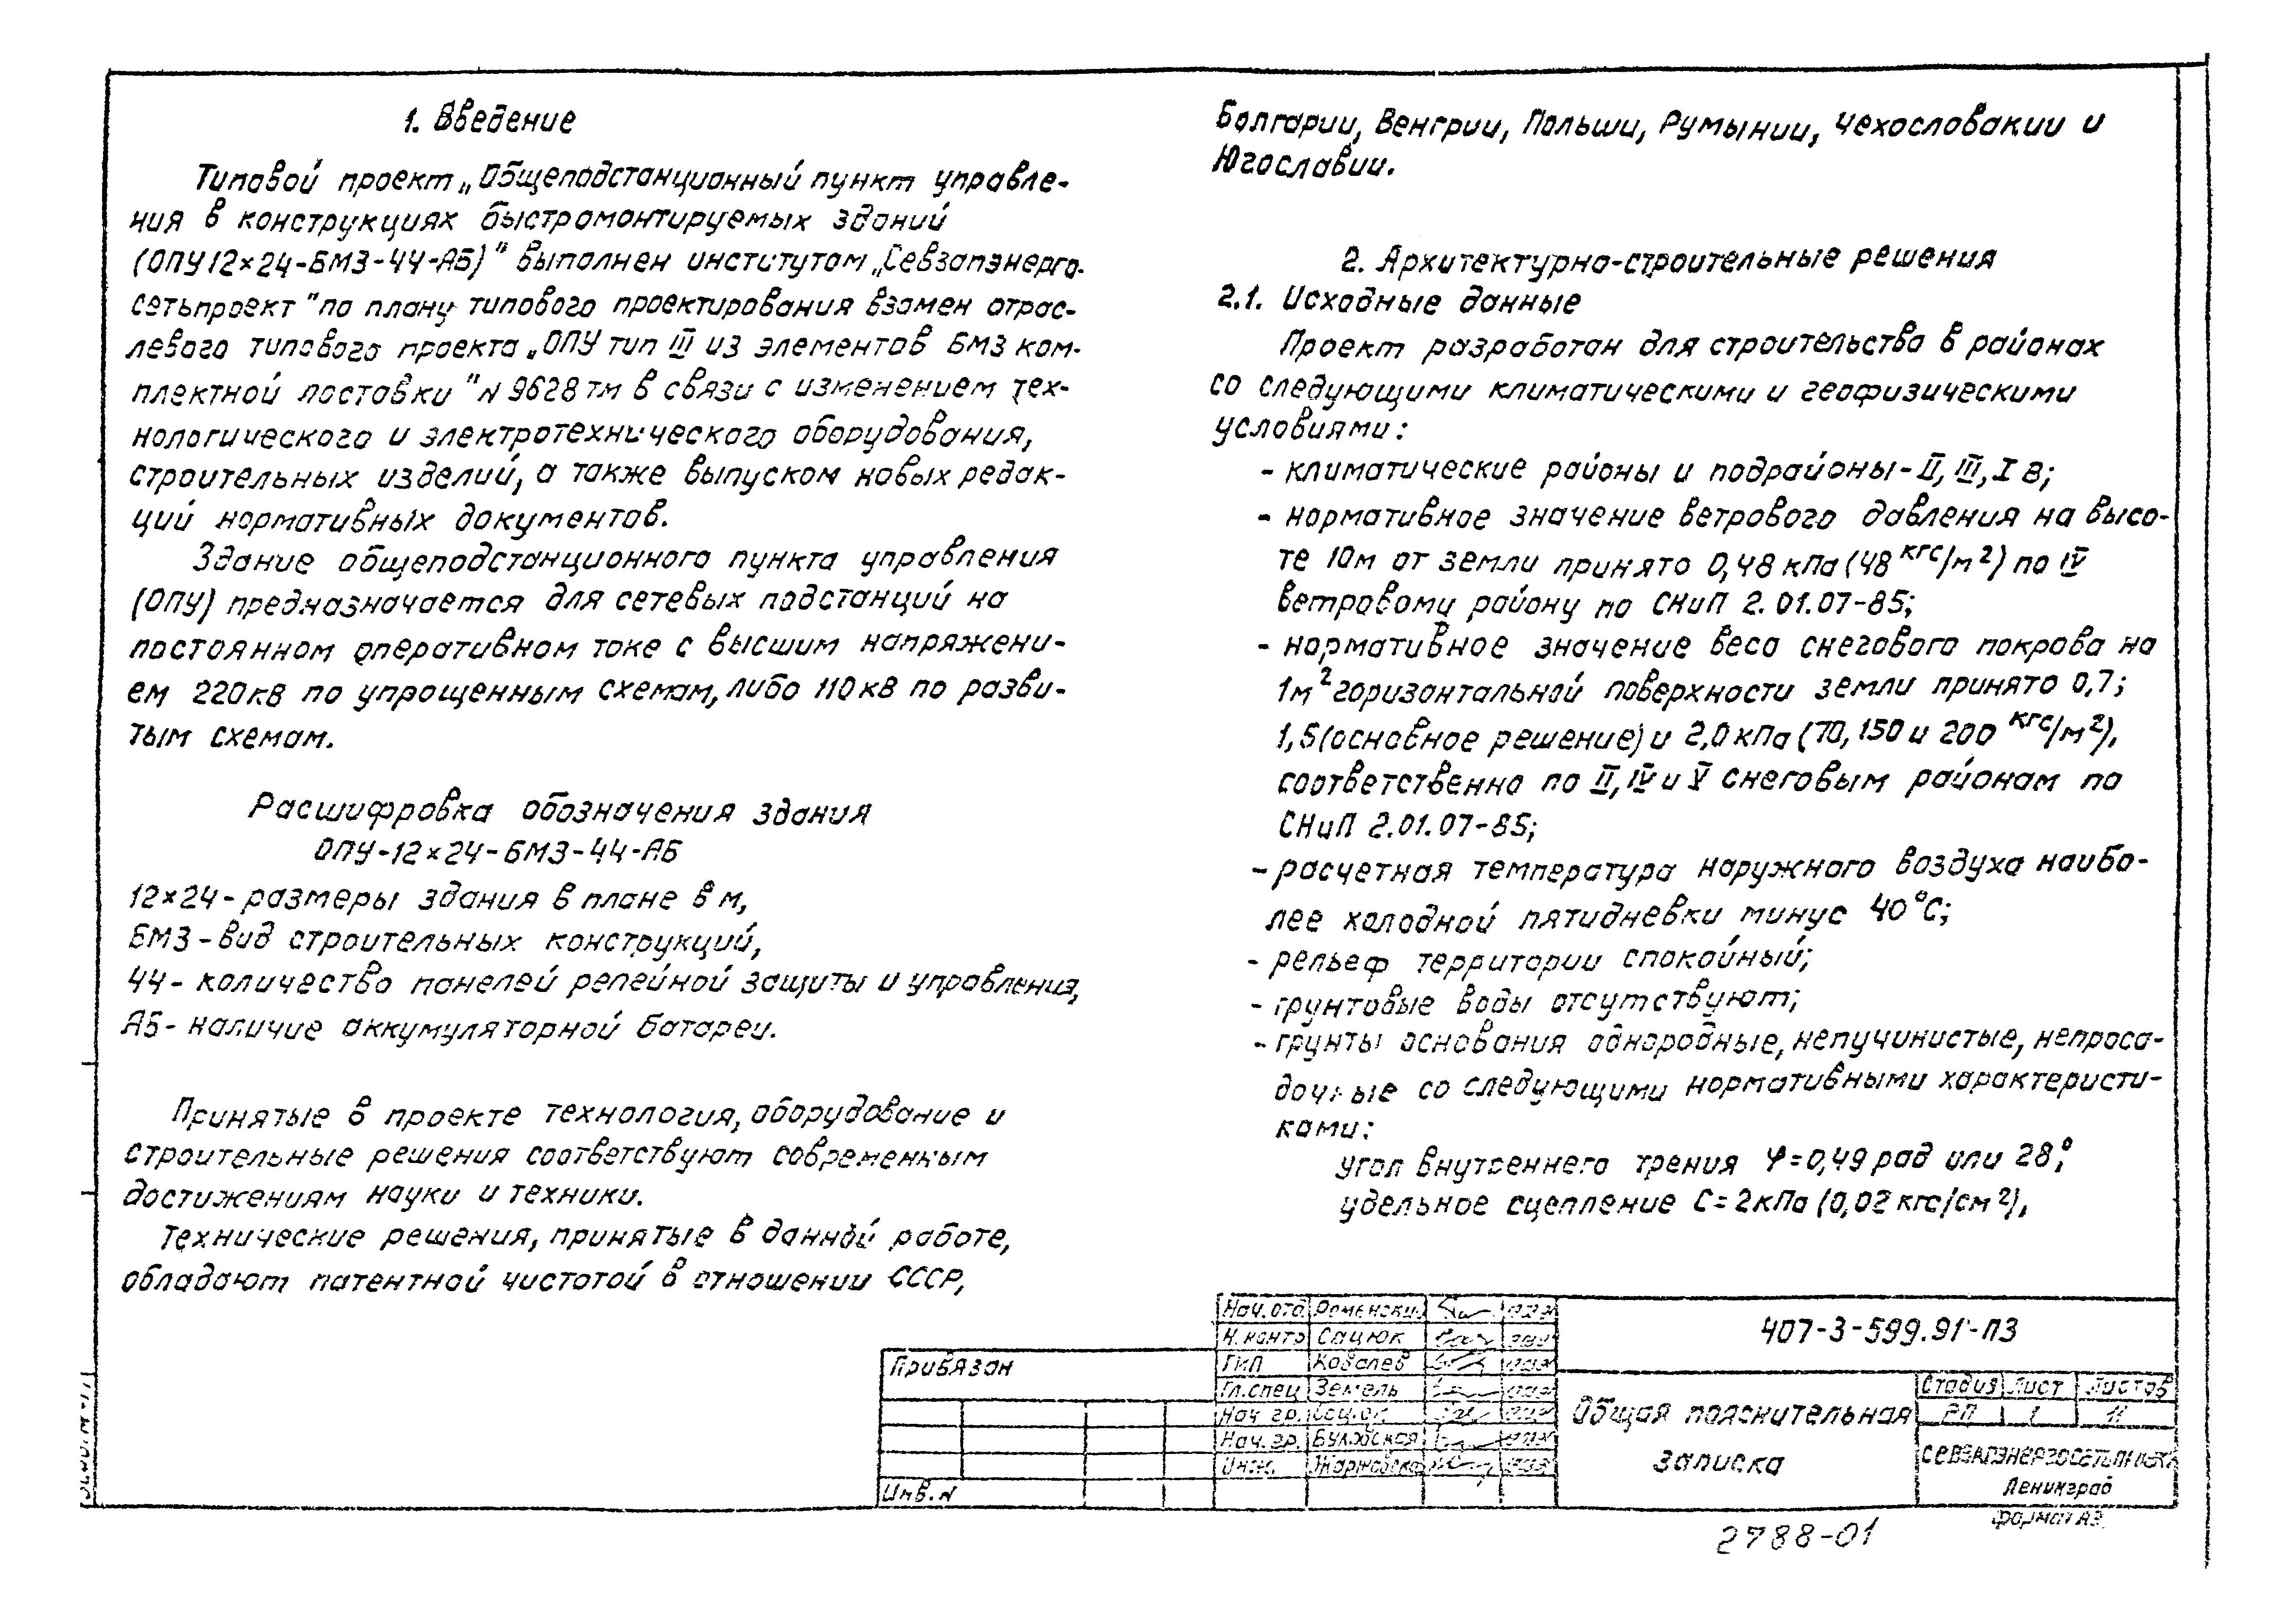 1. Введение
Типовой проект „Общеподстанционный пункт управле-
ния в конструкциях быстромонтируемых зданий
(ОПУ 12×24-БМЗ-44-АБ)" выполнен институтом „Севзапэнерго-
сетьпроект" по плану типового проектирования взамен отрас-
левого типового проекта „ОПУ тип III из элементов БМЗ ком-
плектной поставки" N 9628тм в связи с изменением тех-
нологического и электротехнического оборудования,
строительных изделий, а также выпуском новых редак-
ций нормативных документов.
Здание общеподстанционного пункта управления
(ОПУ) предназначается для сетевых подстанций на
постоянном оперативном токе с высшим напряжени-
ем 220кВ по упрощенным схемам, либо 110кВ по разви-
тым схемам.
Расшифровка обозначения здания
ОПУ-12×24-БМЗ-44-АБ
12×24-размеры здания в плане в м,
БМЗ-вид строительных конструкций,
44- количество панелей релейной защиты и управления,
АБ- наличие аккумуляторной батареи.
Принятые в проекте технология, оборудование и
строительные решения соответствуют современным
достижениям науки и техники.
Технические решения, принятые в данной работе,
обладают патентной чистотой в отношении СССР,
Болгарии, Венгрии, Польши, Румынии, Чехословакии и
Югославии.
2. Архитектурно-строительные решения
2.1. Исходные данные
Проект разработан для строительства в районах
со следующими климатическими и геофизическими
условиями:
- климатические районы и подрайоны-II, III, I В;
- нормативное значение ветрового давления на высо-
те 10м от земли принято 0,48 кПа (48 кгс/м²) по IV
ветровому району по СНиП 2.01.07-85;
- нормативное значение веса снегового покрова на
1м² горизонтальной поверхности земли принято 0,7;
1,5 (основное решение) и 2,0 кПа (70, 150 и 200 кгс/м²),
соответственно по II, IV и V снеговым районам по
СНиП 2.01.07-85;
- расчетная температура наружного воздуха наибо-
лее холодной пятидневки минус 40°С;
- рельеф территории спокойный;
- грунтовые воды отсутствуют;
- грунты основания однородные, непучинистые, непроса-
дочные со следующими нормативными характеристи-
ками:
угол внутреннего трения φ=0,49 рад или 28°;
удельное сцепление С=2кПа (0,02 кгс/см²),
Привязан
Инв. N
Нач. отд Роменский
Н. контр Сацюк
ГИП Ковалев
Гл. спец Земель
Нач. гр.
Нач. гр.
Инж.
407-3-599.91-ПЗ
Общая пояснительная
записка
Стадия Лист Листов
РП 1 11
СЕВЗАПЭНЕРГОСЕТЬПРОЕКТ
Ленинград
формат А3
2788-01